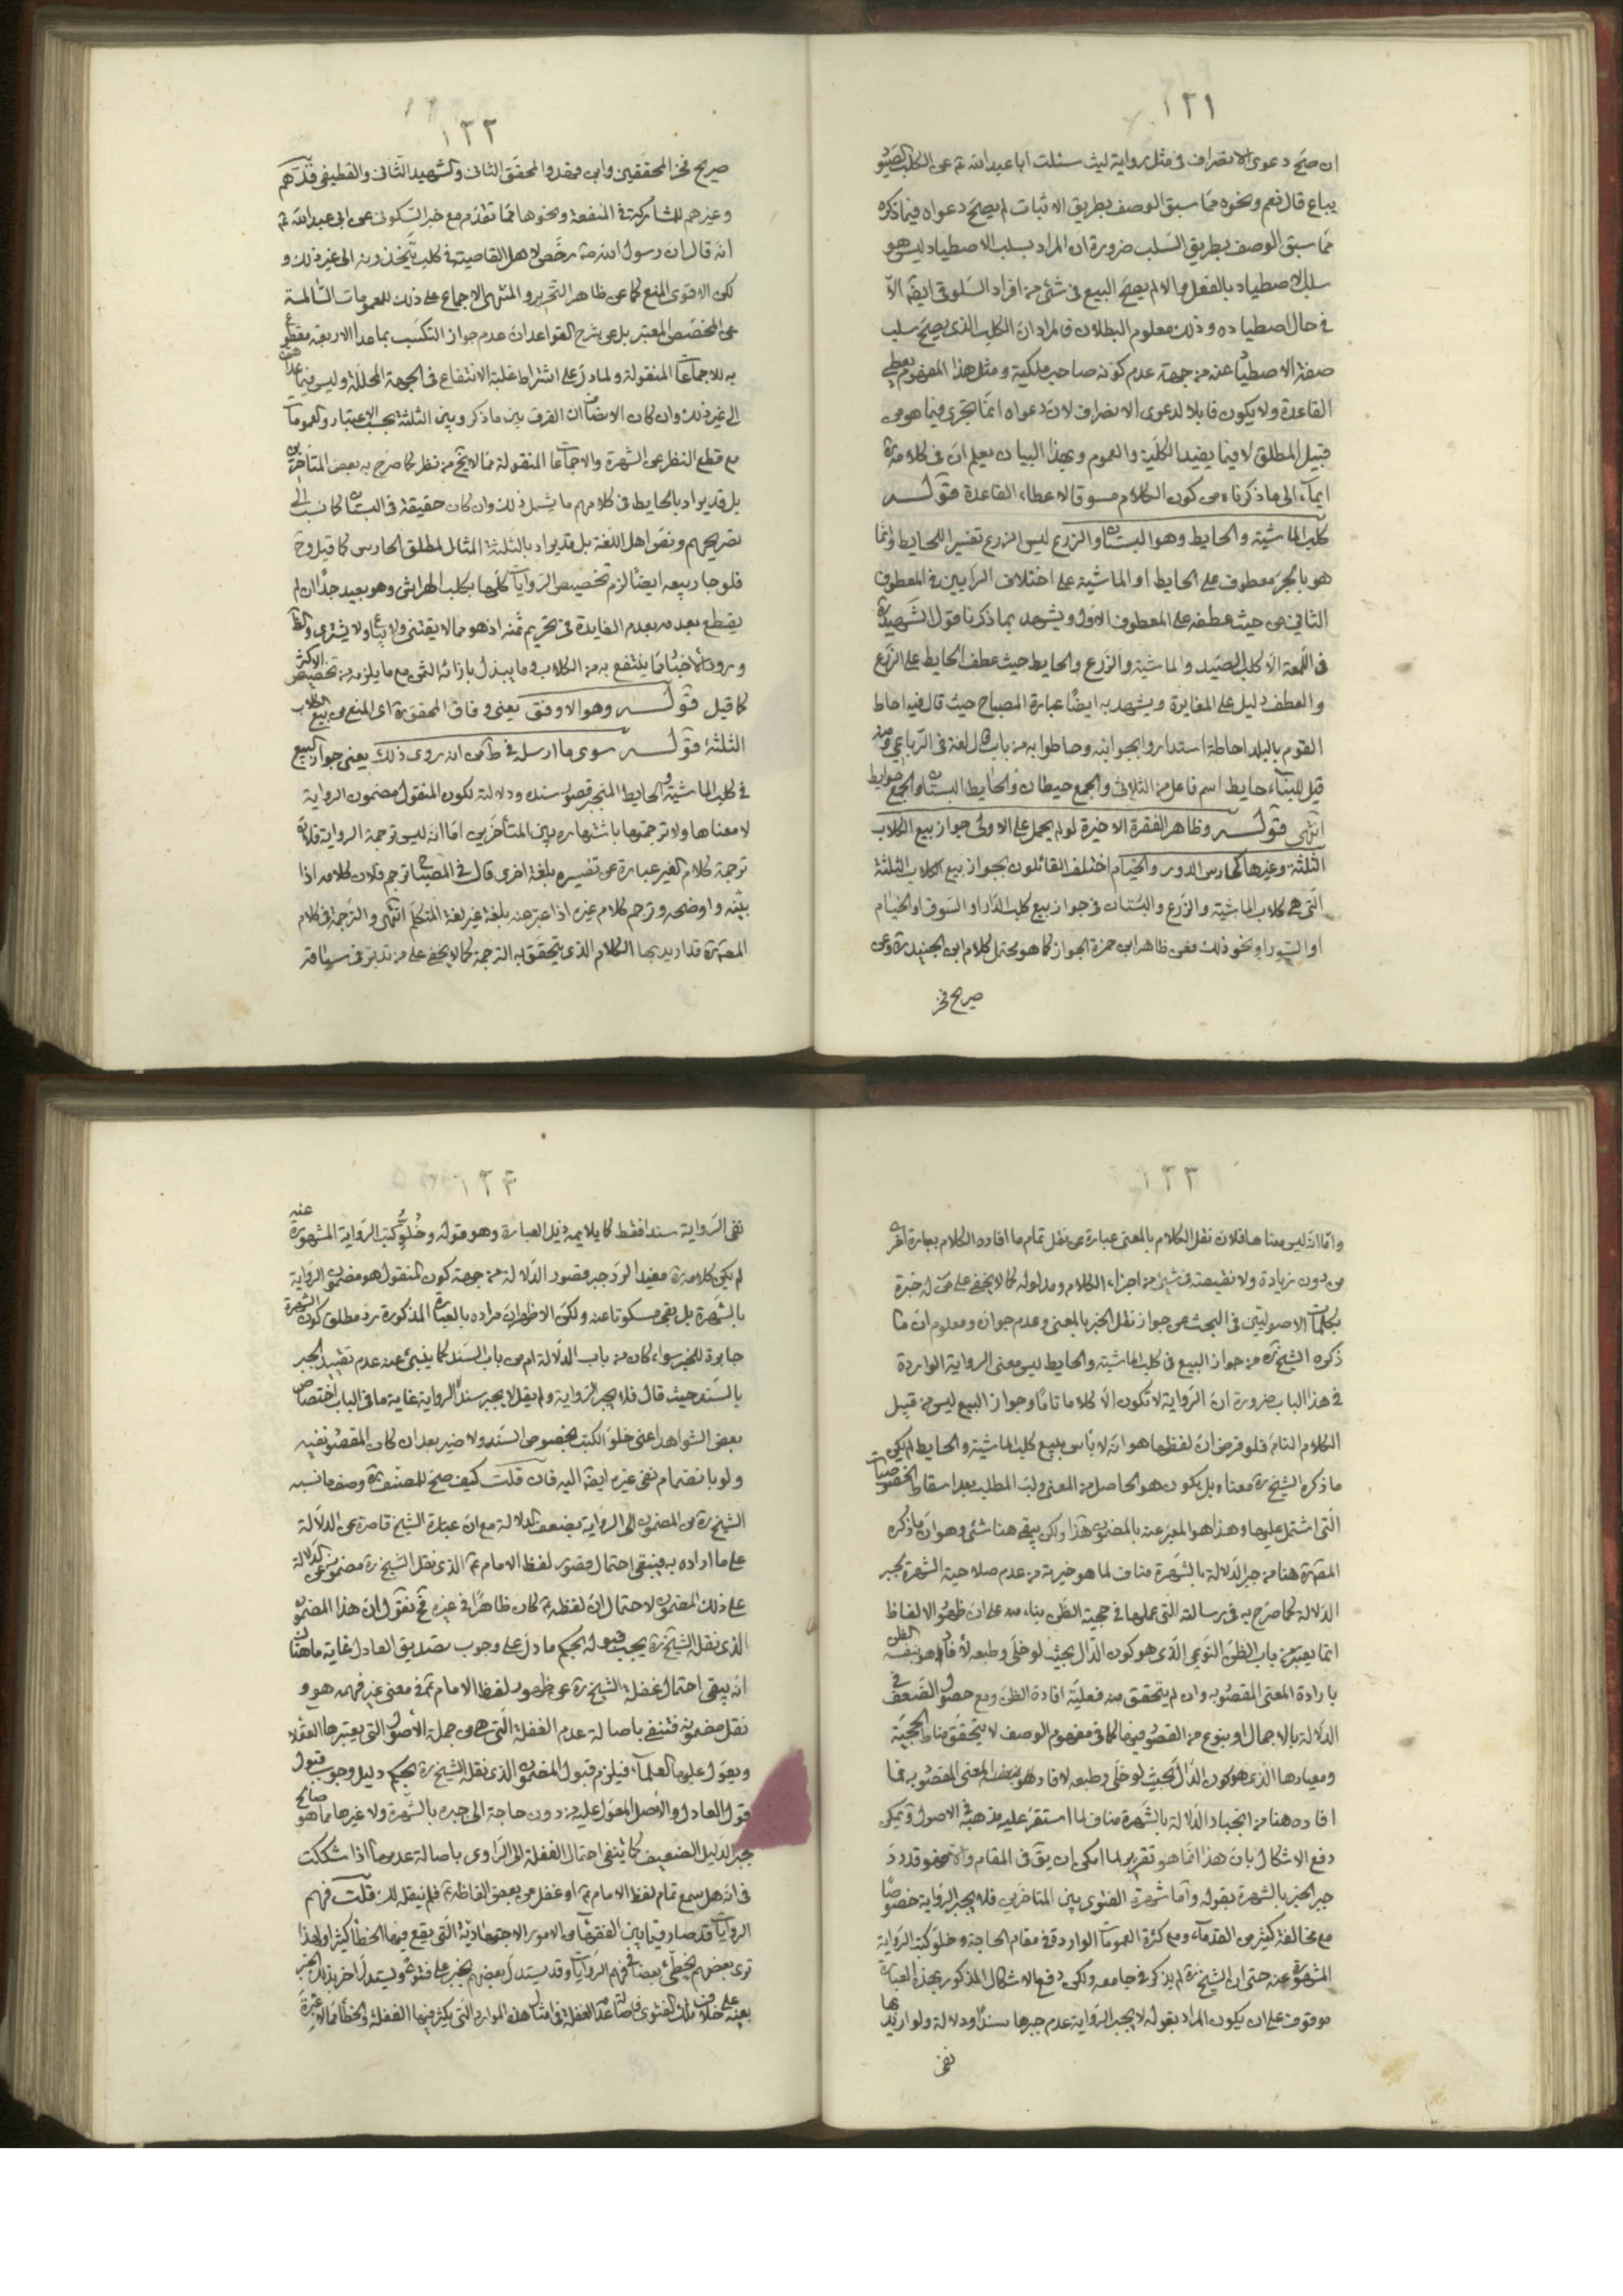 ١٢١
ان صح دعوى الانصراف فى مثل رواية ليث سئلت ابا عبد الله ع عن الكلب الصيود
يباع قال نعم ونحوه مما سبق الوصف بطريق الاثبات لم يصح دعواه فيما ذكره
مما سبق الوصف بطريق السلب ضرورة ان المراد بسلب الاصطياد ليس هو
سلب الاصطياد بالفعل والا لم يصح البيع فى شئ من افراد السلوقى ايضا الا
فى حال اصطياده وذلك معلوم البطلان فالمراد ان الكلب الذى يصح سلب
صفة الاصطياد عنه من جهة عدم كونه صاحب ملكية ومثل هذا المفهوم يعطى
القاعدة ولا يكون قابلا لدعوى الانصراف لان دعواه انما يجرى فيما هو من
قبيل المطلق لا فيما يفيد الكلية والعموم وبهذا البيان يعلم ان فى كلامه ره
ايماء الى ما ذكرناه من كون الكلام مسوقا لاعطاء القاعدة قوله
كلب الماشية والحايط وهو البستان والزرع ليس الزرع تفسيرا للحايط وانما
هو بالجر معطوف على الحايط او الماشية على اختلاف الرايين فى المعطوف
الثانى من حيث عطفه على المعطوف الاول ويشهد بما ذكرنا قول الشهيد ره
فى اللمعة الا كلب الصيد والماشية والزرع والحايط حيث عطف الحايط على الزرع
والعطف دليل على المغايرة ويشهد به ايضا عبارة المصباح حيث قال فيه احاط
القوم بالبلد احاطة استداروا بجوانبه وحاطوا به من باب قال لغة فى الرباعى ومنه
قيل للبناء حايط اسم فاعل من الثلاثى والجمع حيطان والحايط البستان والجمع حوايط
انتهى قوله وظاهر الفقرة الاخيرة لو لم يحمل على الاولى جواز بيع الكلاب
الثلثة وغيرها كحارس الدور والخيام اختلف القائلون بجواز بيع الكلاب الثلثة
التى هى كلاب الماشية والزرع والبستان فى جواز بيع كلب الدار او السوق او الخيام
او السور او نحو ذلك فعن ظاهر ابن حمزة الجواز كما هو محتمل كلام ابن الجنيد ره وعن
صريح فخر
١٢٢
صريح فخر المحققين وابن فهد والمحقق الثانى والشهيد الثانى والقطيفى قدهم
وغيرهم للمشاركة فى المنفعة ونحوها مما تقدم مع خبر السكونى عن ابى عبد الله ع
انه قال ان رسول الله ص رخص لاهل القاصية فى كلب يتخذونه الى غير ذلك و
لكن الاقوى المنع كما عن ظاهر التحرير والمنتهى الاجماع على ذلك للعمومات السالمة
عن المخصص المعتبر بل عن شرح القواعد ان عدم جواز التكسب بما عدا الاربعة مقطوع
به للاجماعات المنقولة ولما دل على اشتراط غلبة الانتفاع فى الجهة المحللة وليس فيما عدا هذه
الى غير ذلك وان كان الانصاف ان الفرق بين ما ذكر وبين الثلثة بحسب الاعتبار والعمومات
مع قطع النظر عن الشهرة والاجماعات المنقولة مما لا يخ من نظر كما صرح به بعض المتاخرين
بل قد يراد بالحايط فى كلامهم ما يشمل ذلك وان كان حقيقة فى البستان كما نسب الى
تصريحهم ونص اهل اللغة بل قد يراد بالثلثة المثال لمطلق الحارس كما قيل وح
فلو جاز بيعه ايضا لزم تخصيص الروايات كلها بكلب الهراش وهو بعيد جدا ان لم
يقطع بعدمه بعدم الفايدة فى تحريم ثمنه اذ هو مما لا يقتنى ولا يباع ولا يشترى
ورود الاخبار مما ينتفع به من الكلاب وما يبذل بازائه الثمن مع ما يلزمه من تخصيص الاكثر
كما قيل قوله وهو الاوفق يعنى وفاق المحقق ره اى المنع من بيع الكلاب
الثلثة قوله سوى ما ارسله فى ط من انه روى ذلك يعنى جواز البيع
فى كلب الماشية والحايط المنجبر قصور سنده ودلالته لكون المنقول مضمون الرواية
لا معناها ولا ترجمتها باشتهاره بين المتأخرين اما انه ليس ترجمة الرواية فلان
ترجمة كلام الغير عبارة عن تفسيره بلغة اخرى قال فى المصباح ترجم فلان كلامه اذا
بينه واوضحه وترجم كلام غيره اذا عبر عنه بلغة غير لغة المتكلم انتهى والترجمة فى كلام
المص ره قد اريد بها الكلام الذى يتحقق به الترجمة كما لا يخفى على من تدبر فى سياقه
١٢٣
واما انه ليس معناها فلان نقل الكلام بالمعنى عبارة عن نقل تمام ما افاده الكلام بعبارة اخرى
من دون زيادة ولا نقيصة فى شئ من اجزاء الكلام ومدلوله كما لا يخفى على من له خبرة
بكلمات الاصوليين فى البحث عن جواز نقل الخبر بالمعنى وعدم جوازه ومعلوم ان ما
ذكره الشيخ ره من جواز البيع فى كلب الماشية والحايط ليس معنى الرواية الواردة
فى هذا الباب ضرورة ان الرواية لا تكون الا كلاما تاما وجواز البيع ليس من قبيل
الكلام التام فلو فرض ان لفظها هو انه لا بأس ببيع كلب الماشية والحايط لم يكن
ما ذكره الشيخ ره معناه بل يكون هو الحاصل من المعنى ولب المطلب بعد اسقاط الخصوصيات
التى اشتمل عليها وهذا هو المعبر عنه بالمضمون هذا ولكن يبقى هنا شئ وهو ان ما ذكره
المص ره هنا من جبر الدلالة بالشهرة مناف لما هو خيرته من عدم صلاحية الشهرة لجبر
الدلالة كما صرح به فى رسالته التى عملها فى حجية الظن بناء منه على ان ظهور الالفاظ
انما يعتبر من باب الظن النوعى الذى هو كون الدال بحيث لو خلى وطبعه لأفاد هو بنفسه الظن
بارادة المعنى المقصود به وان لم يتحقق منه فعلية افادة الظن ومع حصول الضعف فى
الدلالة بالاجمال او بنوع من القصور فيها كما فى مفهوم الوصف لا يتحقق مناط الحجية
ومعيارها الذى هو كون الدال بحيث لو خلى وطبعه لافاد هو بنفسه المعنى المقصود به فما
افاده هنا من انجبار الدلالة بالشهرة مناف لما استقر عليه مذهبه فى الاصول ويمكن
دفع الاشكال بان هذا انما هو تقرير لما امكن ان يق فى المقام والا فهو قد رد
جبر الخبر بالشهرة بقوله واما شهرة الفتوى بين المتاخرين فلا يجبر الرواية خصوصا
مع مخالفة كثير من القدماء ومع كثرة العمومات الواردة فى مقام الحاجة وخلو كتب الرواية
المشهورة عنه حتى ان الشيخ ره لم يذكره فى جامعه ولكن دفع الاشكال المذكور بهذه العبارة
موقوف على ان يكون المراد بقوله لا يجبر الرواية عدم جبرها سندا ودلالة ولو اريد بها
نفى
١٢٤
نفى الرواية سندا فقط كما يلايمه ذيل العبارة وهو قوله وخلو كتب الرواية المشهورة عنه
لم يكن كلامه ره مفيدا لرد جبر قصور الدلالة من جهة كون المنقول هو مضمون الرواية
بالشهرة بل بقى مسكوتا عنه ولكن الاظهر ان مراده بالعبارة المذكورة رد مطلق كون الشهرة
جابرة للخبر سواء كان من باب الدلالة ام من باب السند كما ينبئ عنه عدم تقييد الجبر
بالسند حيث قال فلا يجبر الرواية ولم يقل لا يجبر سند الرواية غاية ما فى الباب اختصاص
بعض الشواهد اعنى خلو الكتب بخصوص السند ولا ضير بعد ان كان المقصود نفيه
ولو بانضمام نفى غيره ايضا اليه فان قلت كيف صح للمصنف ره وصف ما نسبه
الشيخ ره من المضمون الى الرواية بضعف الدلالة مع ان عبارة الشيخ قاصرة عن الدلالة
على ما اراده به فيبقى احتمال قصور لفظ الامام ع الذى نقل الشيخ ره مضمونه عن الدلالة
على ذلك المضمون لاحتمال ان لفظه ع كان ظاهرا فى غيره فح نقول ان هذا المضمون
الذى نقله الشيخ ره يجب قبوله بحكم ما دل على وجوب تصديق العادل غاية ما هناك
انه يبقى احتمال غفلة الشيخ ره عن ظهور لفظ الامام ع فى معنى غير فهمه هو و
نقل مضمونه فتنفى باصالة عدم الغفلة التى هى من جملة الأصول التى يعتبرها العقلاء
ويعول عليها العلماء فيلزم قبول المضمون الذى نقله الشيخ ره بحكم دليل وجوب قبول
قول العادل والأصل المعول عليه من دون حاجة الى جبره بالشهرة ولا غيرها مما هو صالح
لجبر الدليل الضعيف كما ينفى احتمال الغفلة الراوى باصالة عدمها اذا شككت
فى انه هل سمع تمام لفظ الامام ع او غفل عن بعض الفاظه ع فلم ينقله لك قلت فهم
الروايات قد صار فيما بين الفقهاء من الامور الاجتهادية التى يقع فيها الخطأ كثيرا ولهذا
ترى بعضهم يخطئ بعضا فى فهم الروايات وقد يستدل بعضهم بخبر على فتوى ويستدل اخر بذلك الخبر
بعينه على خلاف تلك الفتوى فاصالة عدم الغفلة فى امثال هذه الموارد التى يكثر فيها الغفلة والخطأ مما لا